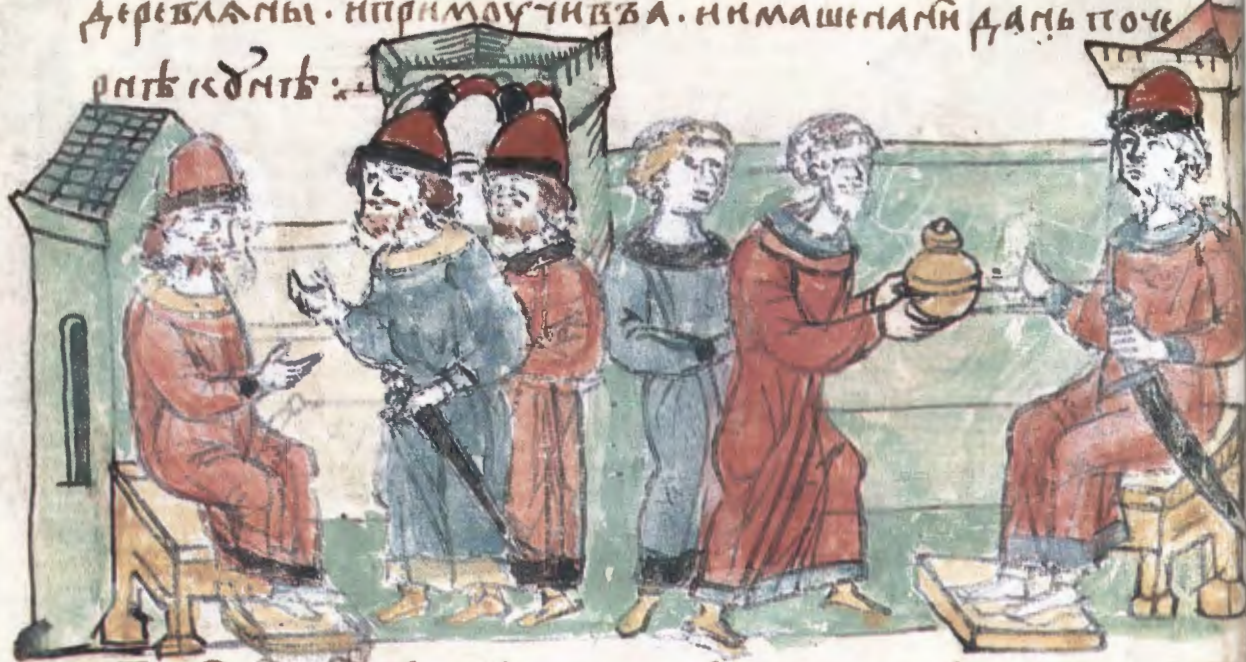 деревлѧны · ипримоучивъѧ · иимашенани дань поче
рнѣ кꙋнѣ :·